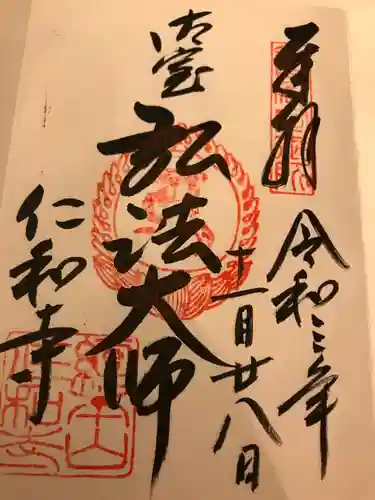 奉拝
令和三年
十一月廿八日
御室
弘法大師
仁和寺